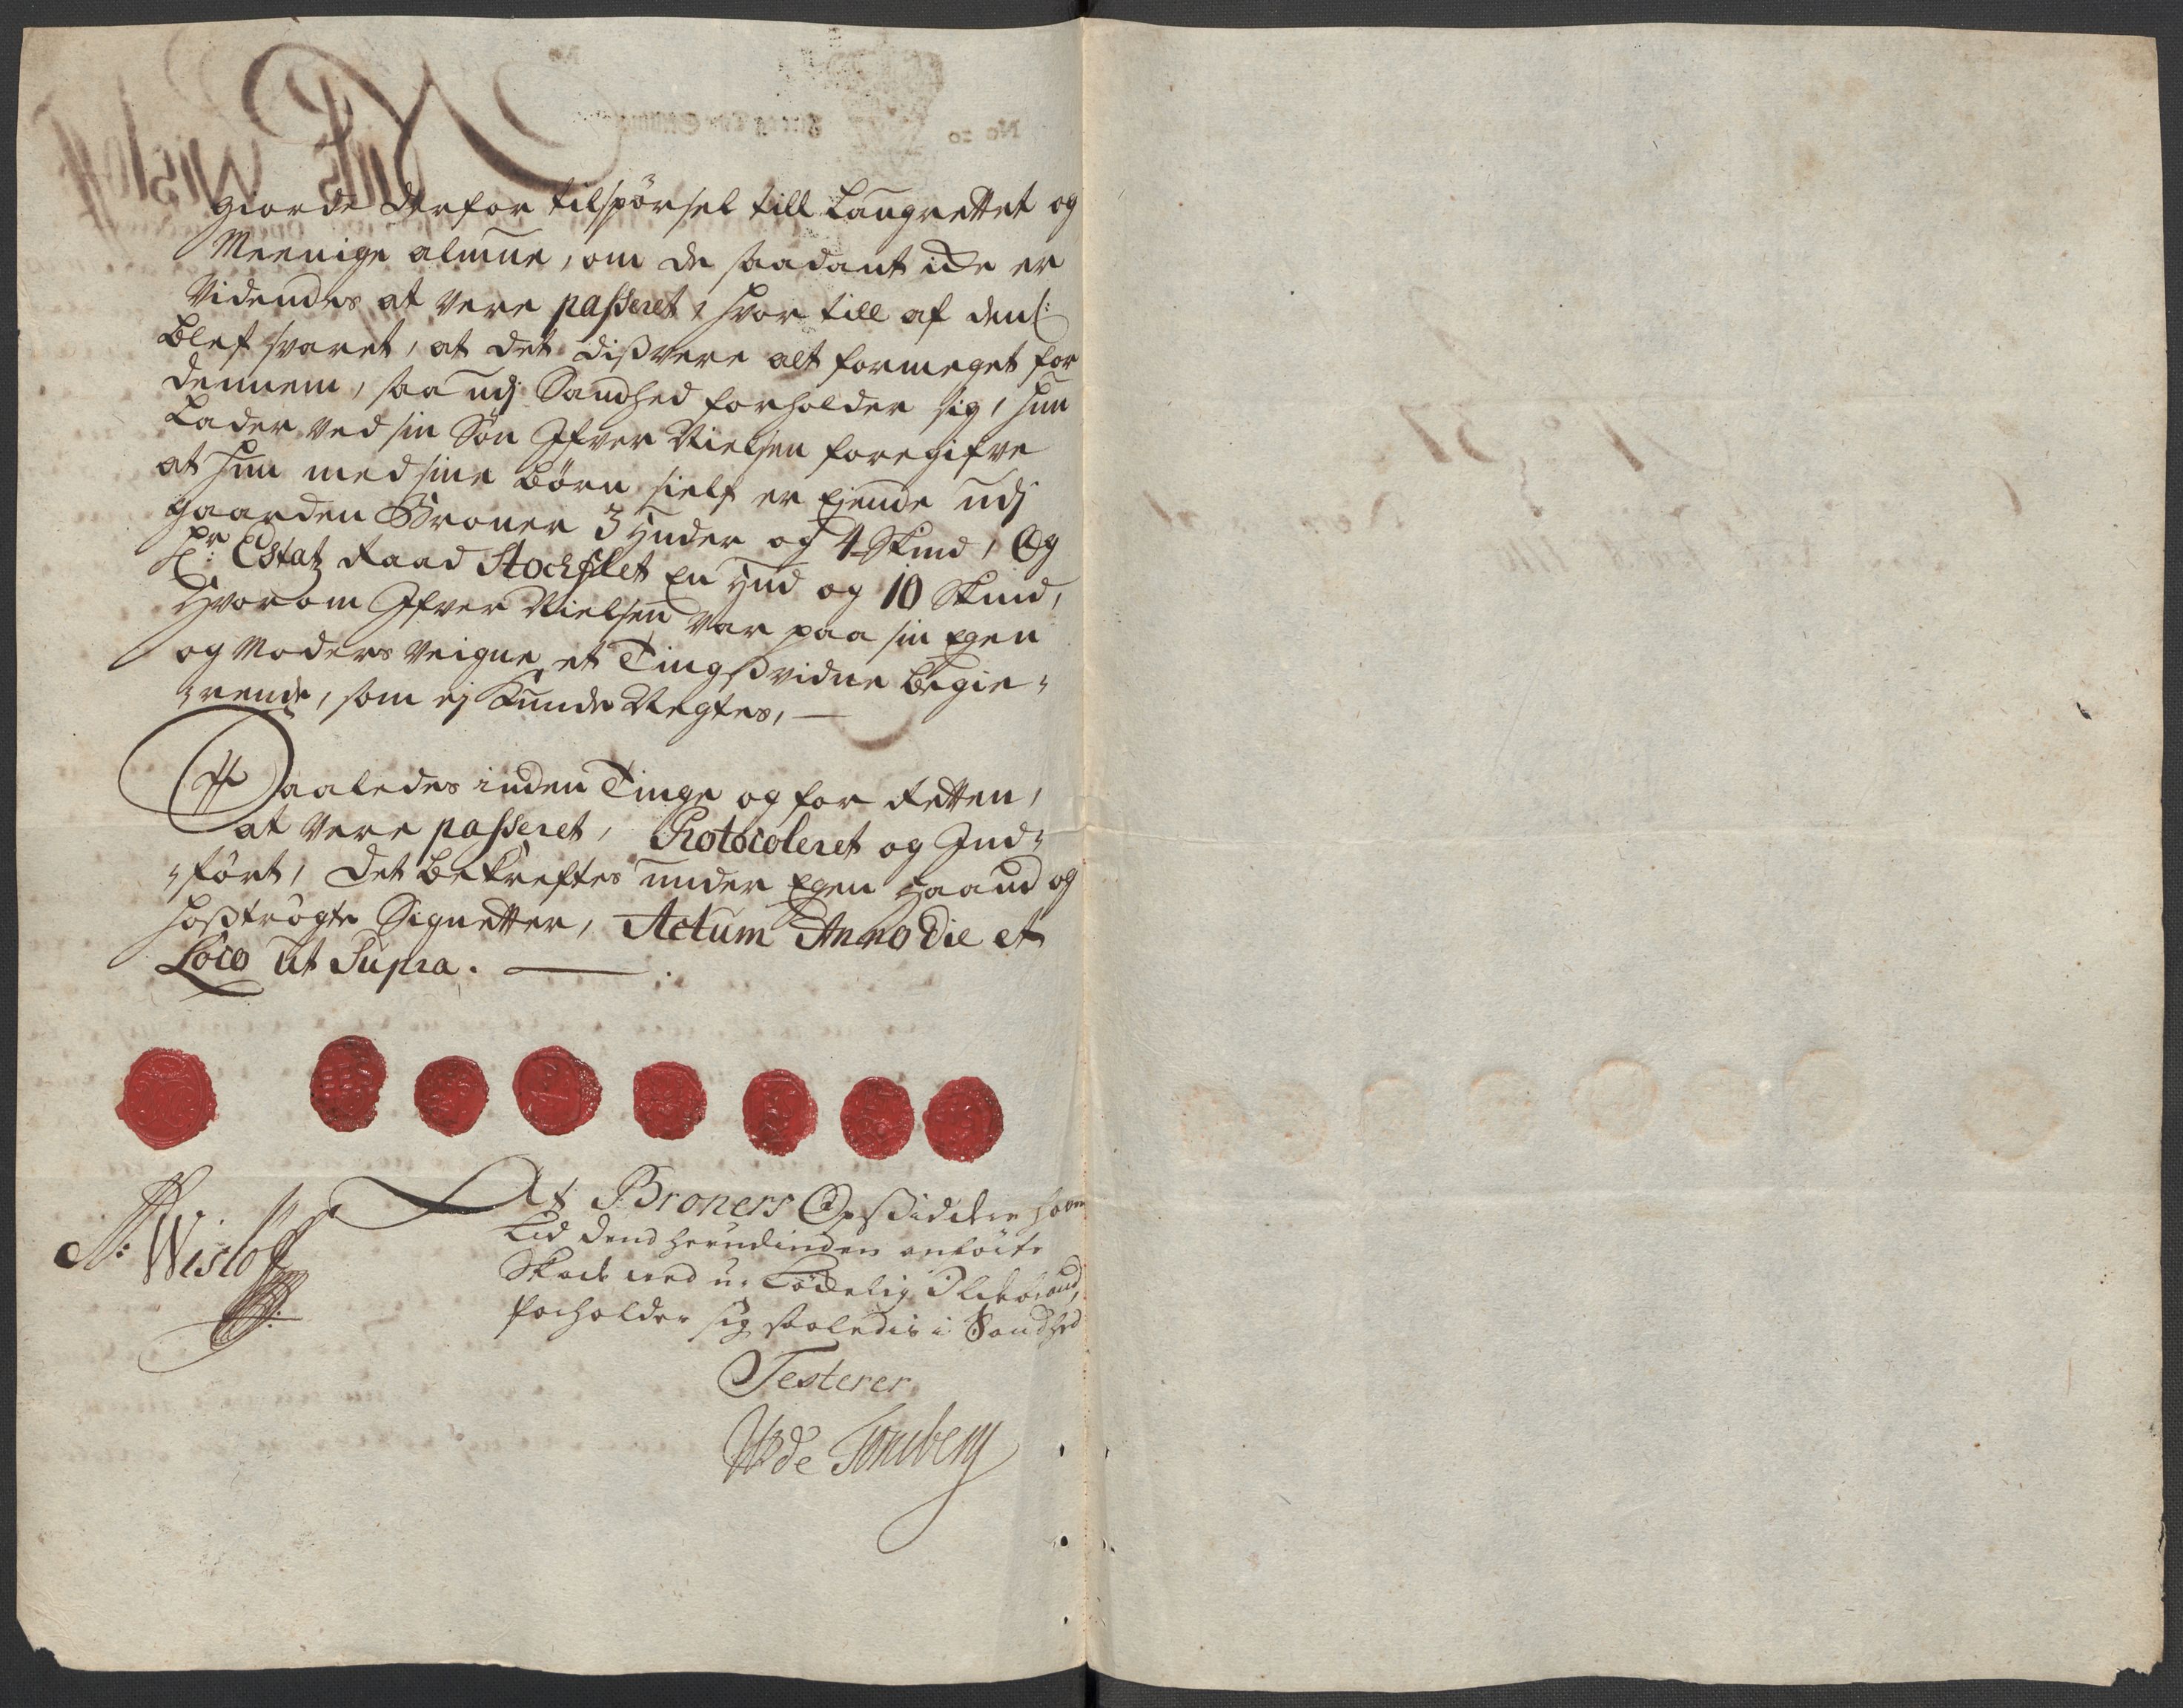 giorde derfor tilspørsel till Laugrettet og
Meenige almue, om de saadant icke er
Videndes at vere passeret, hvor till af dend:
blef svaret, at det dißvere alt formeget for
dennem, saa udj Sandhed forholder sig, hun
Lader ved sin Søn Ifver Nielsen foregifve
at hun med sine børn sielf er Ejende udj
gaarden Broner 3 Huder og 4 Skind, Og
Hr: Estatz Raad Stockflet En Hud og 10 Skind,
Hvorom Ifver Nielsen var paa sin Egen
og Moders Veigne et Tingßvidne begie-
rende, som ej Kunde Negtes,
Saaledes inden Tinge og for Retten,
at vere passeret, Protocoleret og Ind-
ført, det bekreftes under Egen Haand og
hoßtrögte Signetter, Actum Anno Die et
Loco ut Supra.
At Broners Opsiddere
Lid dend herudinden
Skade ved
forholder sig saaledis i Sandhed
Testerer
N: Wisløff